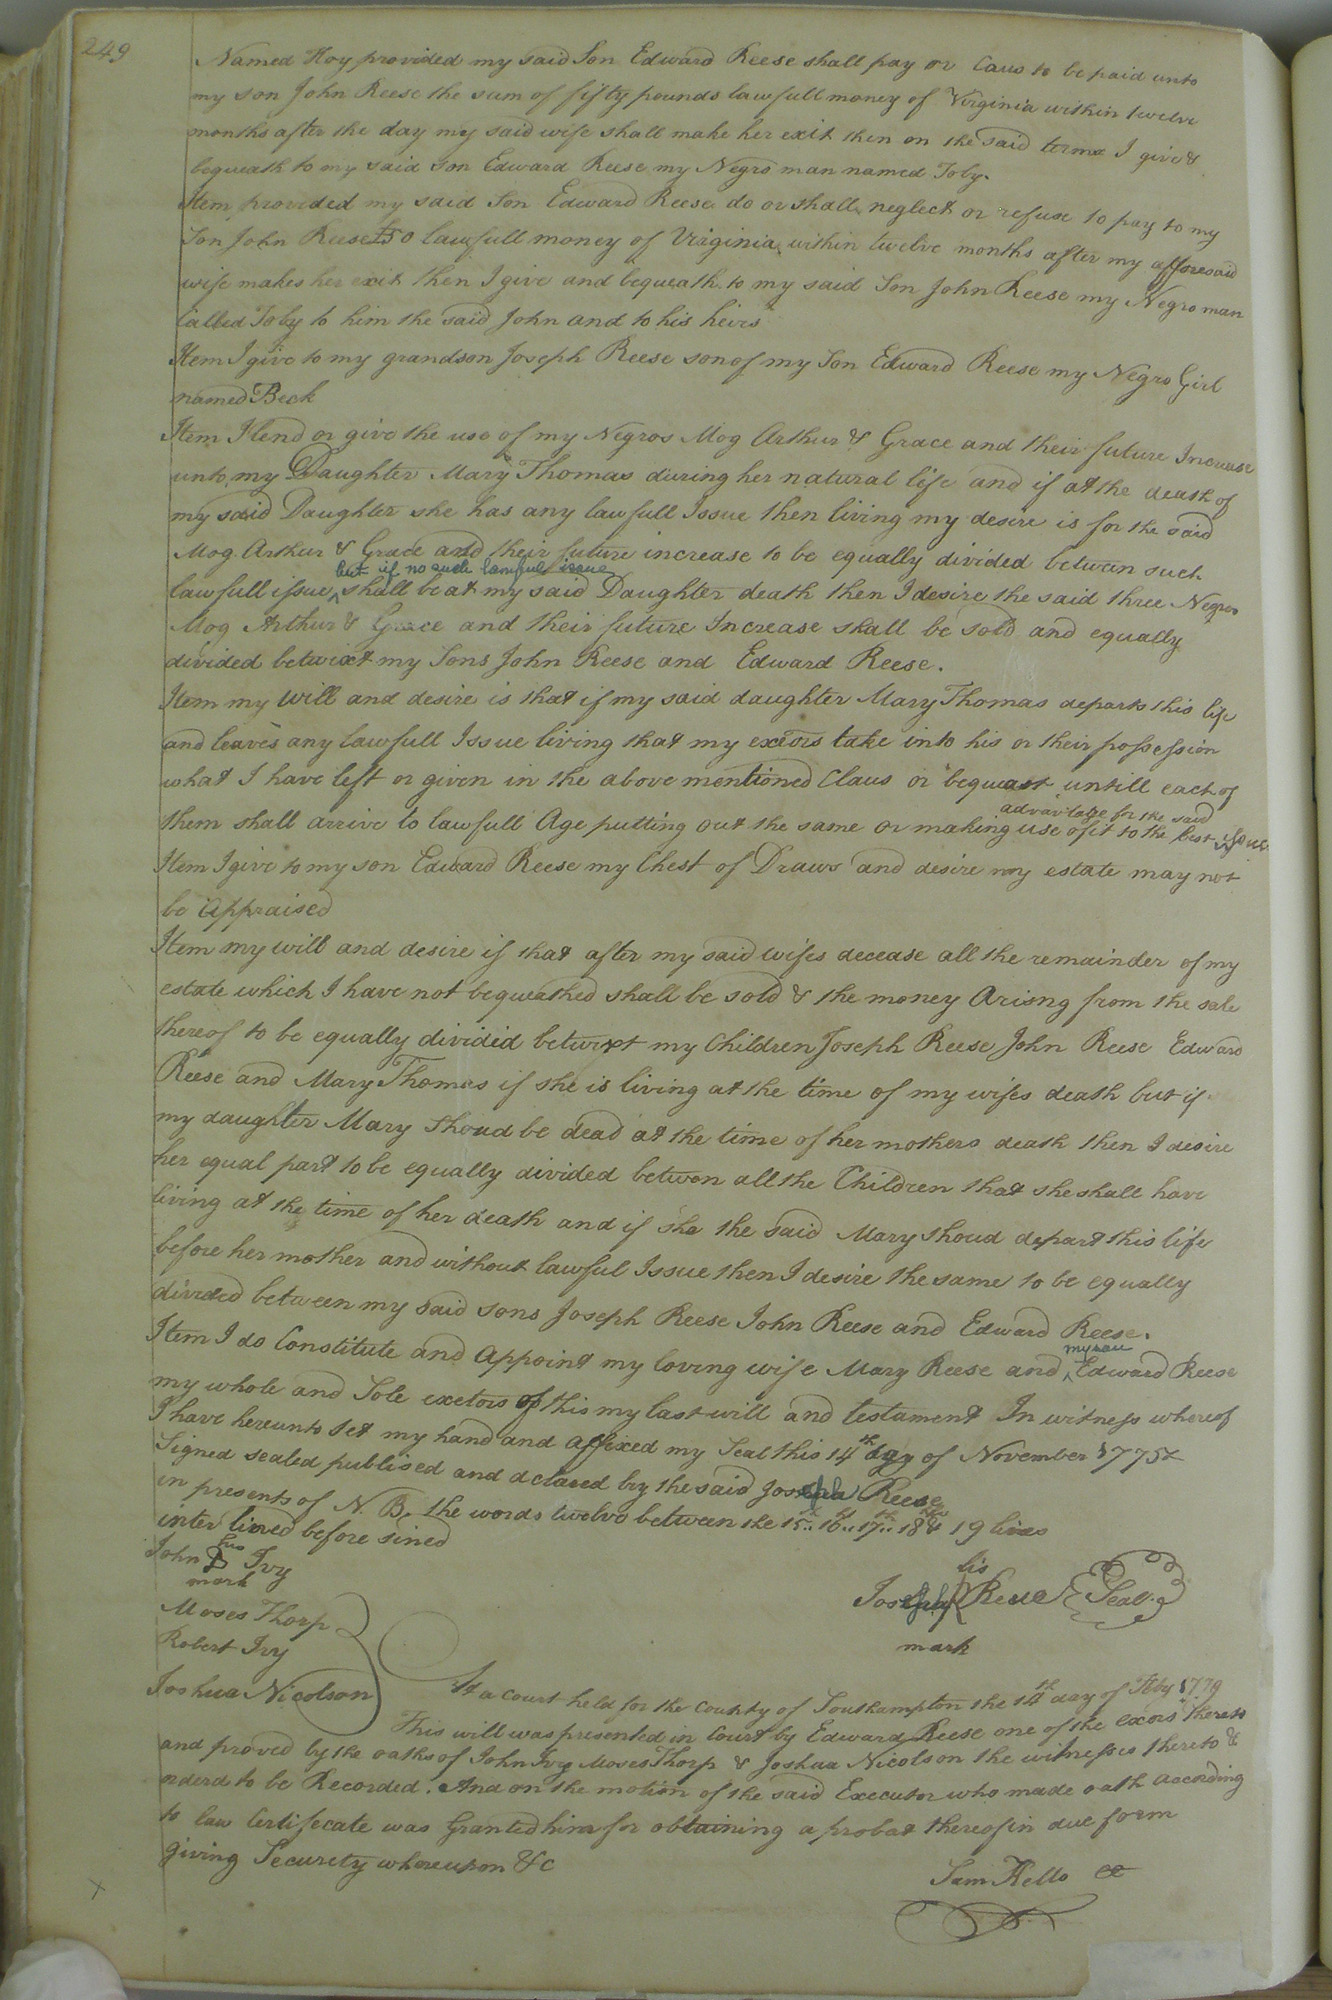 249
Named Hoy provided my said Son Edward Reese shall pay or Caus to be paid unto
my son John Reese the sum of fifty pounds lawfull money of Virginia within twelve
months after the day my said wife shall make her exit then on the said terms I give &
bequeath to my said Son Edward Reese my Negro man named Toby.
Item provided my said Son Edward Reese do or shall neglect or refuse to pay to my
Son John Reese £50 lawfull money of Virginia within twelve months after my afforesaid
wife makes her exit then I give and bequeath to my said Son John Reese my Negro man
Called Toby to him the said John and to his heirs
Item I give to my grandson Joseph Reese son of my Son Edward Reese my Negro Girl
named Beck
Item I lend or give the use of my Negros Mog Arthur & Grace and their future Increase
unto my Daughter Mary Thomas during her natural life and if at the death of
my said Daughter she has any lawfull Issue then living my desire is for the said
Mog Arthur & Grace and their future increase to be equally divided betwen such
but if no such lawful issue
lawfull issue ^ shall be at my said Daughter death then I desire the said three Negros
Mog Arthur & Grace and their future Increase shall be sold and equally
divided betwixt my Sons John Reese and Edward Reese.
Item my Will and desire is that if my said daughter Mary Thomas departs this life
and leaves any lawfull Issue living that my exeors take into his or their possession
what I have left or given in the above mentioned Claus or bequast untill each of
advantage for the said
them shall arrive to lawfull Age putting out the same or making use of it to the best Issue
Item I give to my son Edward Reese my Chest of Draws and desire my estate may not
be Appraised
Item my will and desire if that after my said wifes decease all the remainder of my
estate which I have not bequeathed shall be sold & the money Arisng from the sale
thereof to be equally divided betwixt my Children Joseph Reese John Reese Edward
Reese and Mary Thomas if she is living at the time of my wifes death but if
my daughter Mary Shoud be dead at the time of her mothers death then I desire
her equal part to be equally divided betwen all the Children that she shall have
living at the time of her death and if she the said Mary Shoud depart this life
before her mother and without lawful Issue then I desire the same to be equally
divided between my said sons Joseph Reese John Reese and Edward Reese.
my son
Item I do Constitute and Appoint my loving wife Mary Reese and ^ Edward Reese
my whole and Sole exetors of this my last will and testament In witness whereof
I have hereunto set my hand and affixed my Seal this 14th day of November 1775
Signed sealed publised and dclared by the said Joseph Reese
in presents of N. B. the words twelve between the 15th 16th 17th 18th 19 lines
inter lined before sined
his
John Ivy
mark
Moses Thorp
Robert Ivy
Joshua Nicolson
his
Joseph Reese Seal
mark
At a Court held for the County of Southampton the 14th day of Feby 1779
This will was presented in Court by Edward Reese one of the exors thereto
and proved by the oaths of John Ivy Moses Thorp & Joshua Nicolson the witnesses thereto &
orderd to be Recorded. And on the motion of the said Executor who made oath according
to law Certifecate was Granted him for obtaining a probat thereof in due form
giving Security whereupon &c
Sam Kello